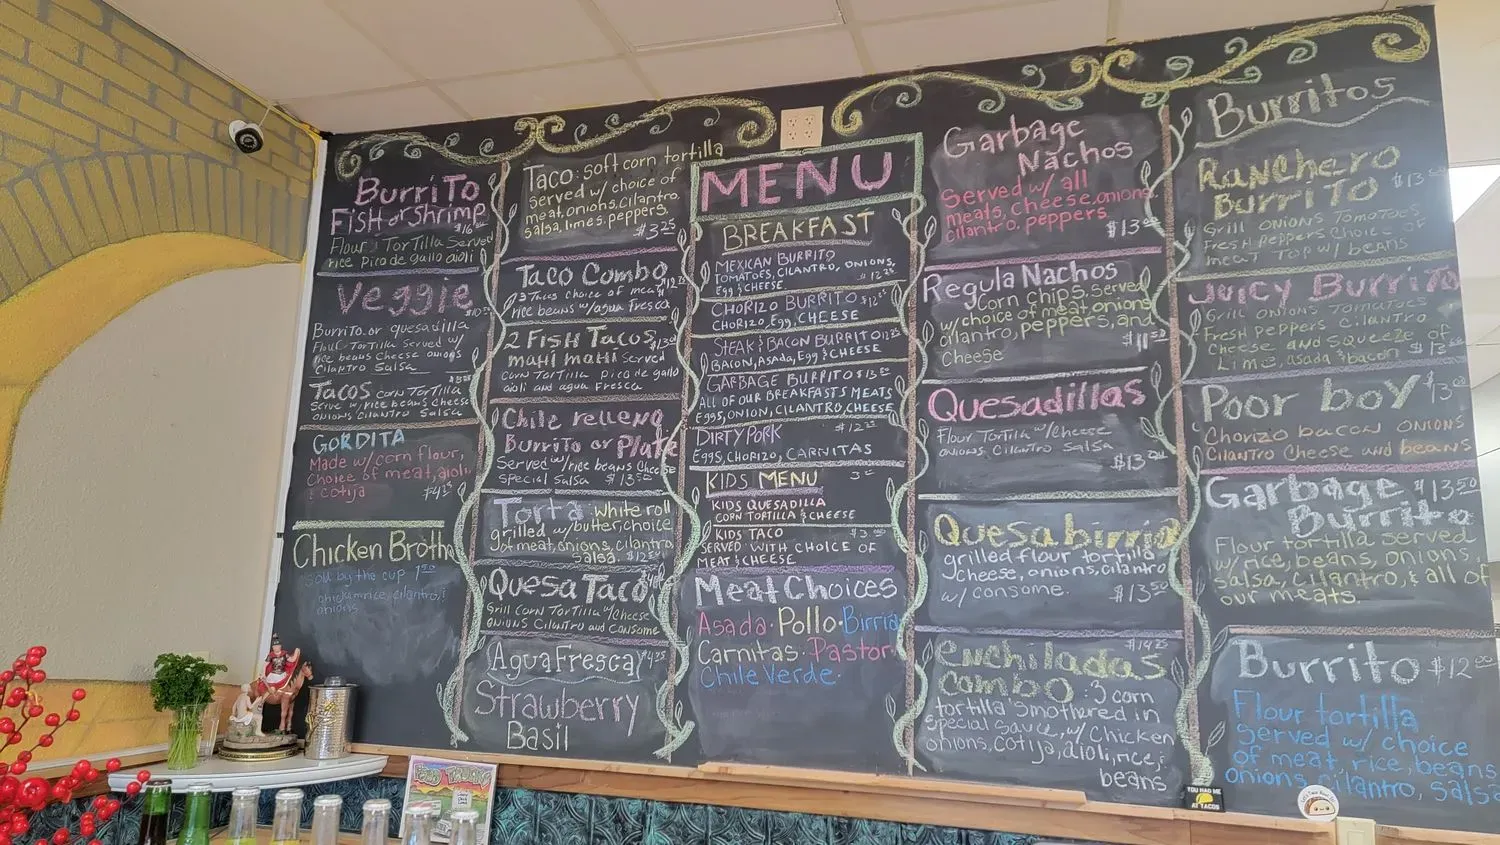 Burrito
Fish or Shrimp
$16
Flour Tortilla Served
rice Pico de gallo aioli
Veggie
$10
Burrito or quesadilla
Flour Tortilla Served w/
rice beans Cheese onions
Cilantro Salsa
Tacos corn Tortilla
Serve w/rice beans Cheese
onions Cilantro Salsa
GORDITA
Made w/corn flour,
Choice of meat, aioli
& cotija
Chicken Broth
Sold by the cup
chicken, rice, cilantro, &
onions
Taco: soft corn tortilla
served w/ choice of
meat, onions, cilantro,
salsa, limes, peppers.
$3.25
Taco Combo
3 Tacos choice of meat
rice beans w/agua Fresca
2 Fish Tacos
mahi mahi Served
Corn Tortilla Pico de gallo
aioli and agua Fresca
Chile relleno
Burrito or Plate
Served w/rice beans Cheese
special Salsa $13.50
Torta: white roll
grilled w/butter, choice
of meat, onions, cilantro
salsa
QuesaTaco
Grill Corn Tortilla w/cheese
onions Cilantro and Consome
Agua Fresca
Strawberry
Basil
MENU
BREAKFAST
MEXICAN BURRITO
TOMATOES, CILANTRO, ONIONS,
Egg & CHEESE
CHORIZO BURRITO
CHORIZO, Egg, CHEESE
STEAK & BACON BURRITO
BACON, ASADA, Egg & CHEESE
GARBAGE BURRITO $13.50
ALL OF OUR BREAKFASTS MEATS
Eggs, ONION, CILANTRO, CHEESE
DIRTY PORK
EGGS, CHORIZO, CARNITAS
KIDS MENU
KIDS QUESADILLA
CORN TORTILLA & CHEESE
KIDS TACO
SERVED WITH CHOICE OF
MEAT & CHEESE
Meat Choices
Asada · Pollo · Birria
Carnitas · Pastor ·
Chile Verde ·
Garbage
Nachos
Served w/ all
meats, cheese, onions
cilantro, peppers.
$13
Regula Nachos
Corn chips, served
w/ choice of meat, onions
cilantro, peppers, and
cheese
Quesadillas
Flour Tortilla w/cheese
onions Cilantro Salsa
Quesabirria
grilled flour tortilla
cheese, onions, cilantro
w/ consome.
$13.50
enchiladas
$14.25
Combo: 3 corn
tortilla smothered in
special sauce, w/ Chicken
onions, cotija, aioli, rice,
beans
Burritos
Ranchero
Burrito
Grill onions Tomatoes
Fresh Peppers Choice of
meat Top w/ beans
Juicy Burrito
Grill onions Tomatoes
Fresh Peppers Cilantro
Cheese and squeeze of
Lime, asada & bacon
Poor boy
Chorizo bacon onions
Cilantro Cheese and beans
Garbage $13.50
Burrito
Flour tortilla served
w/ rice, beans, onions,
salsa, cilantro, & all of
our meats.
Burrito $12
Flour tortilla
served w/ choice
of meat, rice, beans
onions, cilantro, salsa
YOU HAD ME
AT TACOS